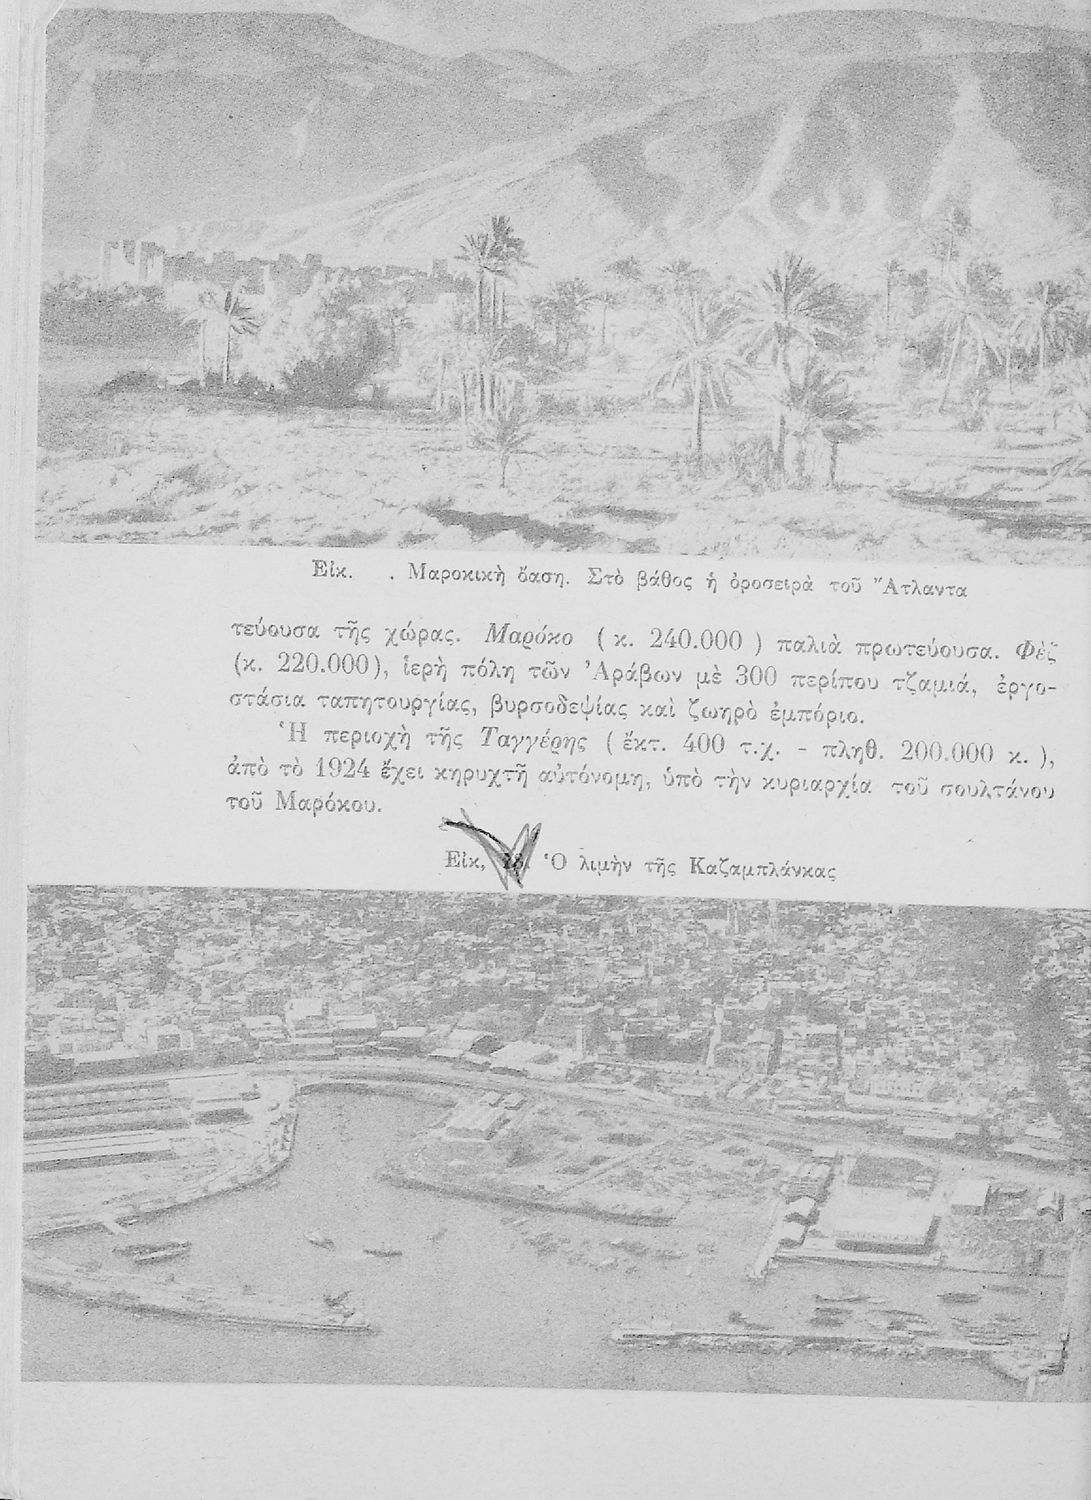 Εἰκ. . Μαροκικὴ ὄαση. Στὸ βάθος ἡ ὀροσειρὰ τοῦ Ἄτλαντα
τεύουσα τῆς χώρας. Μαρόκο ( κ. 240.000 ) παλιὰ πρωτεύουσα. Φὲζ
(κ. 220.000), ἱερὴ πόλη τῶν Ἀράβων μὲ 300 περίπου τζαμιά, ἐργο-
στάσια ταπητουργίας, βυρσοδεψίας καὶ ζωηρὸ ἐμπόριο.
Ἡ περιοχὴ τῆς Ταγγέρης ( ἔκτ. 400 τ.χ. - πληθ. 200.000 κ. ),
ἀπὸ τὸ 1924 ἔχει κηρυχτῆ αὐτόνομη, ὑπὸ τὴν κυριαρχία τοῦ σουλτάνου
τοῦ Μαρόκου.
Εἰκ, Ὁ λιμὴν τῆς Καζαμπλάνκας